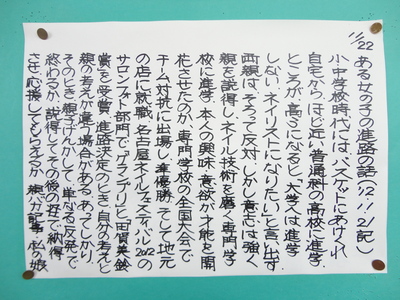 11/22 ある女の子の進路の話(12/1/21記し)
小・中学校時代には、バスケットにあけくれ
自宅からほど近い普通科の高校に進学.
ところが、高3になると、「大学へは進学
しない.ネイリストになりたい」と言い出す
両親は、そろって反対.しかし意志は強く
親を説得し、ネイル技術を磨く専門学
校に進学、本人の興味、意欲、才能を開
花させたのか、専門学校の全国大会で
チーム対抗に出場し準優勝、そして地元
の店に就職、名古屋ネイルフェスティバル2012の
サロンアート部門で「グランプリ」と「田賀美鈴
賞」を受賞、進路決定のとき、自分の考えと
親の考えが違う場合がある、あってしかり.
そのとき親子げんかして、単なる反発で
終わるか、説得してその後の姿で納得
させ、応援してもらえるか 親バカ記事 私の娘